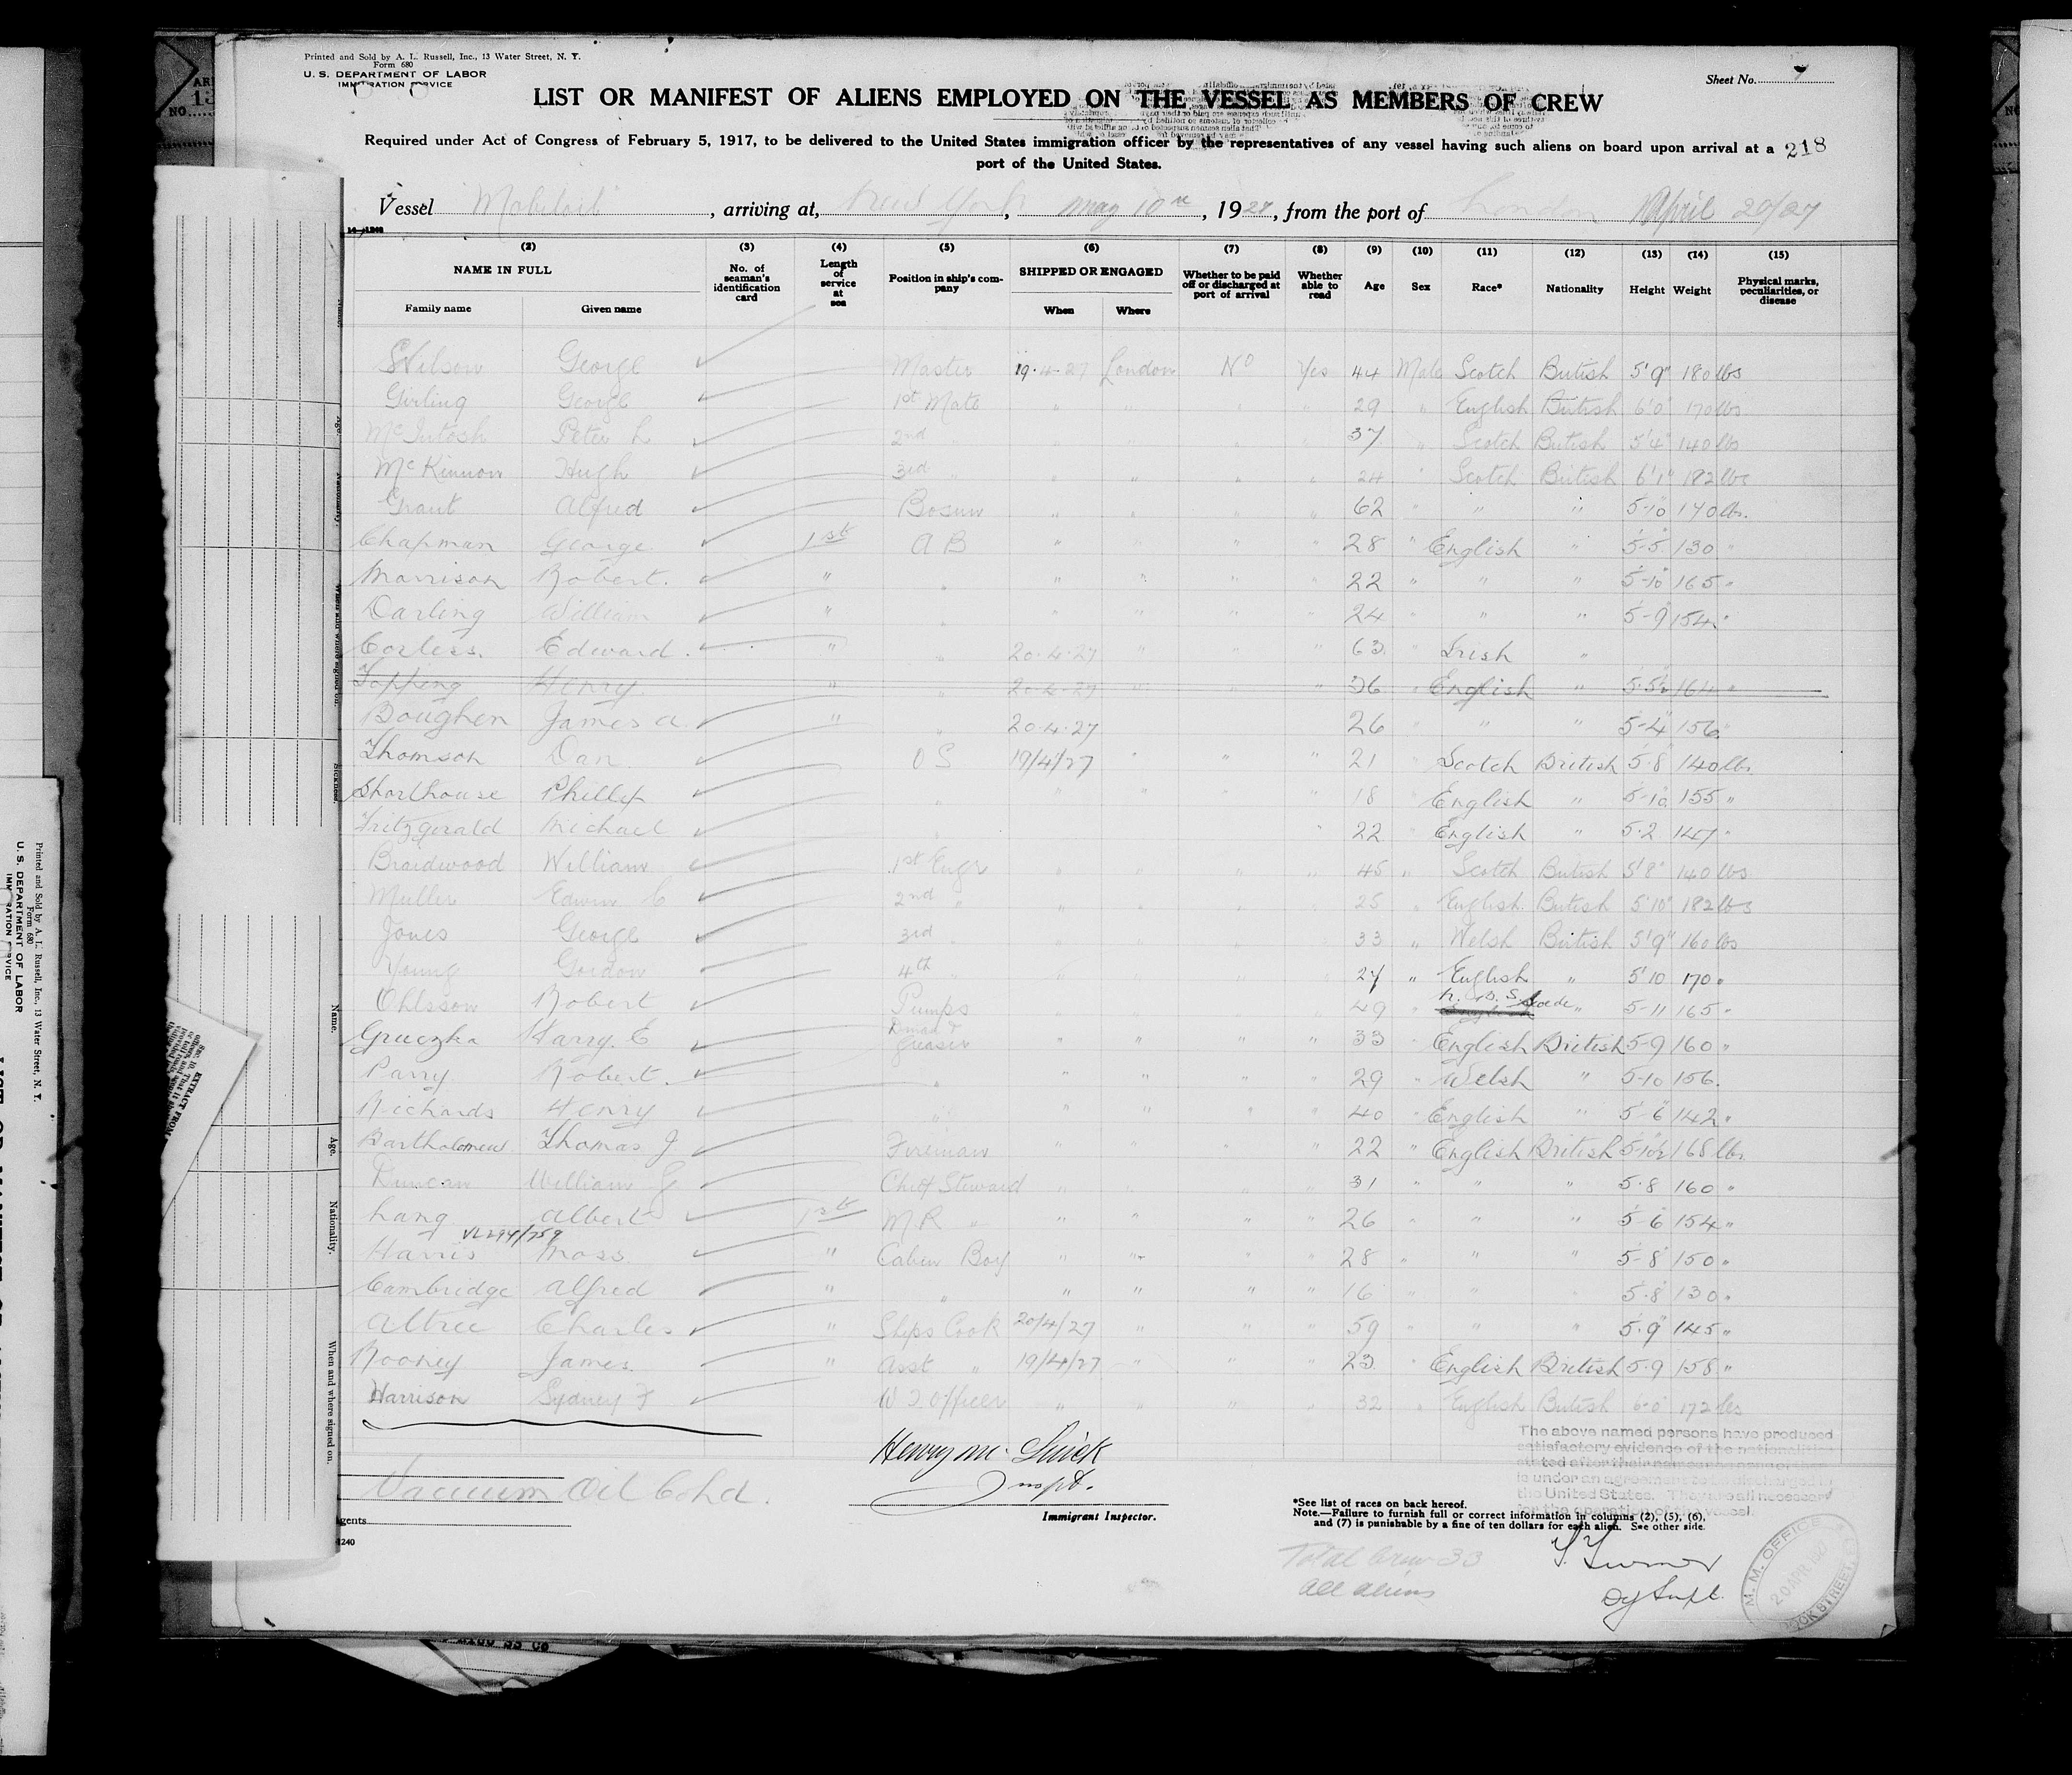 Printed and Sold by A. L. Russell, Inc., 13 Water Street, N. Y.
Form 680
U. S. DEPARTMENT OF LABOR
IMMIGRATION SERVICE
Sheet No.
LIST OR MANIFEST OF ALIENS EMPLOYED ON THE VESSEL AS MEMBERS OF CREW
Required under Act of Congress of February 5, 1917, to be delivered to the United States immigration officer by the representatives of any vessel having such aliens on board upon arrival at a 218
port of the United States.
Vessel "Mobiloil", arriving at, New York, May 10th, 1927, from the port of London April 20/27
(2) (3) (4) (5) (6) (7) (8) (9) (10) (11) (12) (13) (14) (15)
NAME IN FULL No. of seaman's identification card Length of service at sea Position in ship's company SHIPPED OR ENGAGED Whether to be paid off or discharged at port of arrival Whether able to read Age Sex Race* Nationality Height Weight Physical marks, peculiarities, or disease
Family name Given name When Where
Wilson George Master 19.4.27 London No Yes 44 Male Scotch British 5'9" 180 lbs
Girling George 1st Mate " " " " 29 " English British 6'0" 170 lbs
McIntosh Peter L 2nd " " " " " 37 " Scotch British 5'4" 140 lbs
McKinnon Hugh 3rd " " " " " 24 " Scotch British 6'1" 182 lbs
Grant Alfred Bosun " " " " 62 " " " 5-10 170 lbs.
Chapman George 1st A B " " " " 28 " English " 5-5 130 "
Morrison Robert. " " " " " " 22 " " " 5-10 165 "
Darling William " " " " " " 24 " " " 5-9 154 "
Corless. Edward. " " 20.4.27 " " " 63 " Irish "
Topping Henry " " 20.4.27 " " 36 " English " 5-5½ 164 "
Boughen James A. " " 20.4.27 26 " " " 5-4 156 "
Thomson Dan O S 19/4/27 " " " 21 " Scotch British 5-8 140 lbs.
Shorthouse Phillip " " " " " 18 English " 5-10 155 "
Fritzgerald Michael " " 22 English " 5-2 147 "
Braidwood William 1st Engr " " " " 45 " Scotch British 5'8" 140 lbs
Muller Edwin C 2nd " " " " " 25 " English British 5'10" 182 lbs
Jones George 3rd " " " " " 33 " Welsh British 5'9" 160 lbs
Young Gordon 4th " " " " " 27 " English " 5'10 170 "
Ohlsson Robert Pumps " " " " 49 " Swede " 5-11 165 "
Gruczka Harry. E Dman & Greaser " " " " 33 " English British 5-9 160 "
Parry Robert. " " " " " 29 " Welsh " 5-10 156.
Richards Henry " " " " " 40 " English " 5-6 142 "
Bartholomew Thomas J. Fireman " " " " 22 " English British 5-10½ 168 lbs.
Duncan William G Chief Steward " " " " 31 " " " 5-8 160 "
Lang Albert 1st M R " " " " " 26 " " " 5-6 154 "
Harris Moss " Cabin Boy " " " " 28 " " " 5-8 150 "
Cambridge Alfred " " " " " " 16 " " " 5-8 130 "
Attree Charles " Ships Cook 20/4/27 " " " 59 " " " 5-9 145 "
Rooney James. " Asst " 19/4/27 " " " 23 " English British 5-9 158 "
Harrison Sydney F W T Officer " " " " 32 " English British 6-0 172 lbs
Vacuum Oil Co Ltd.
Agents
Inspt.
Immigrant Inspector.
The above named persons have produced
satisfactory evidence of the nationalities
stated after their names
is under an agreement to be discharged in
the United States. They are all necessary
for the operation of the vessel.
*See list of races on back hereof.
Note.—Failure to furnish full or correct information in columns (2), (5), (6),
and (7) is punishable by a fine of ten dollars for each alien. See other side.
Total Crew 33
All aliens
Turner
Dy Supt.
M. M. OFFICE
20 APR 1927
1240
Name.
Age.
Nationality.
When and where signed on.
EXTRACT FROM
Printed and Sold by A. L. Russell, Inc., 13 Water Street, N. Y.
Form 680
U. S. DEPARTMENT OF LABOR